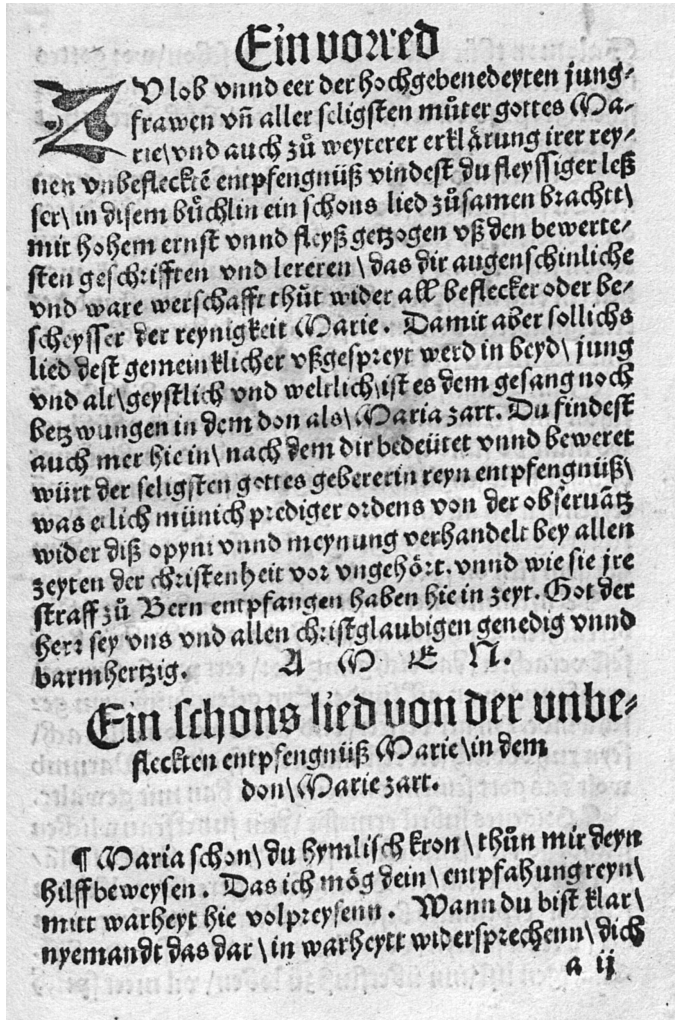 Ein vorred
ZU lob vnnd eer der hochgebenedeyten jung⸗
frawen vñ aller seligsten můter gottes Ma⸗
rie\ vnd auch zů weyterer erklärung irer rey⸗
nen vnbeflecktē entpfengnüß vindest du fleyssiger leß
ser\ in disem bůchlin ein schons lied zůsamen brachtt\
mit hohem ernst vnnd fleyß getzogen vß den bewerte⸗
sten geschrifften vnd lereren \ das dir augenschinliche
vnd ware werschafft thůt wider all beflecker oder be⸗
scheysser der reynigkeit Marie. Damit aber sollichs
lied dest gemeinklicher vßgespreyt werd in beyd\ jung
vnd alt\ geystlich vnd weltlich\ ist es dem gesang noch
betzwungen in dem don als\ Maria zart. Du findest
auch mer hie in\ nach dem dir bedeütet vnnd beweret
würt der seligsten gottes gebererin reyn entpfengnüß\
was etlich münich prediger ordens von der obseruātz
wider diß opyni vnnd meynung verhandelt bey allen
zeyten der christenheit vor vngehört. vnnd wie sie jre
straff zů Bern entpfangen haben hie in zeyt. Got der
herr sey vns vnd allen christglaubigen genedig vnnd
barmhertzig. A M E N.
Ein schons lied von der vnbe⸗
fleckten entpfengnüß Marie\ in dem
don\ Marie zart.
¶ Maria schon\ du hymlisch kron \ thůn mir deyn
hilff beweysen. Das ich mög dein\ entpfahung reyn\
mitt warheyt hie volpreysenn. Wann du bist klar\
nyemandt das dar \ in warheytt widersprechenn\ dich
a ij